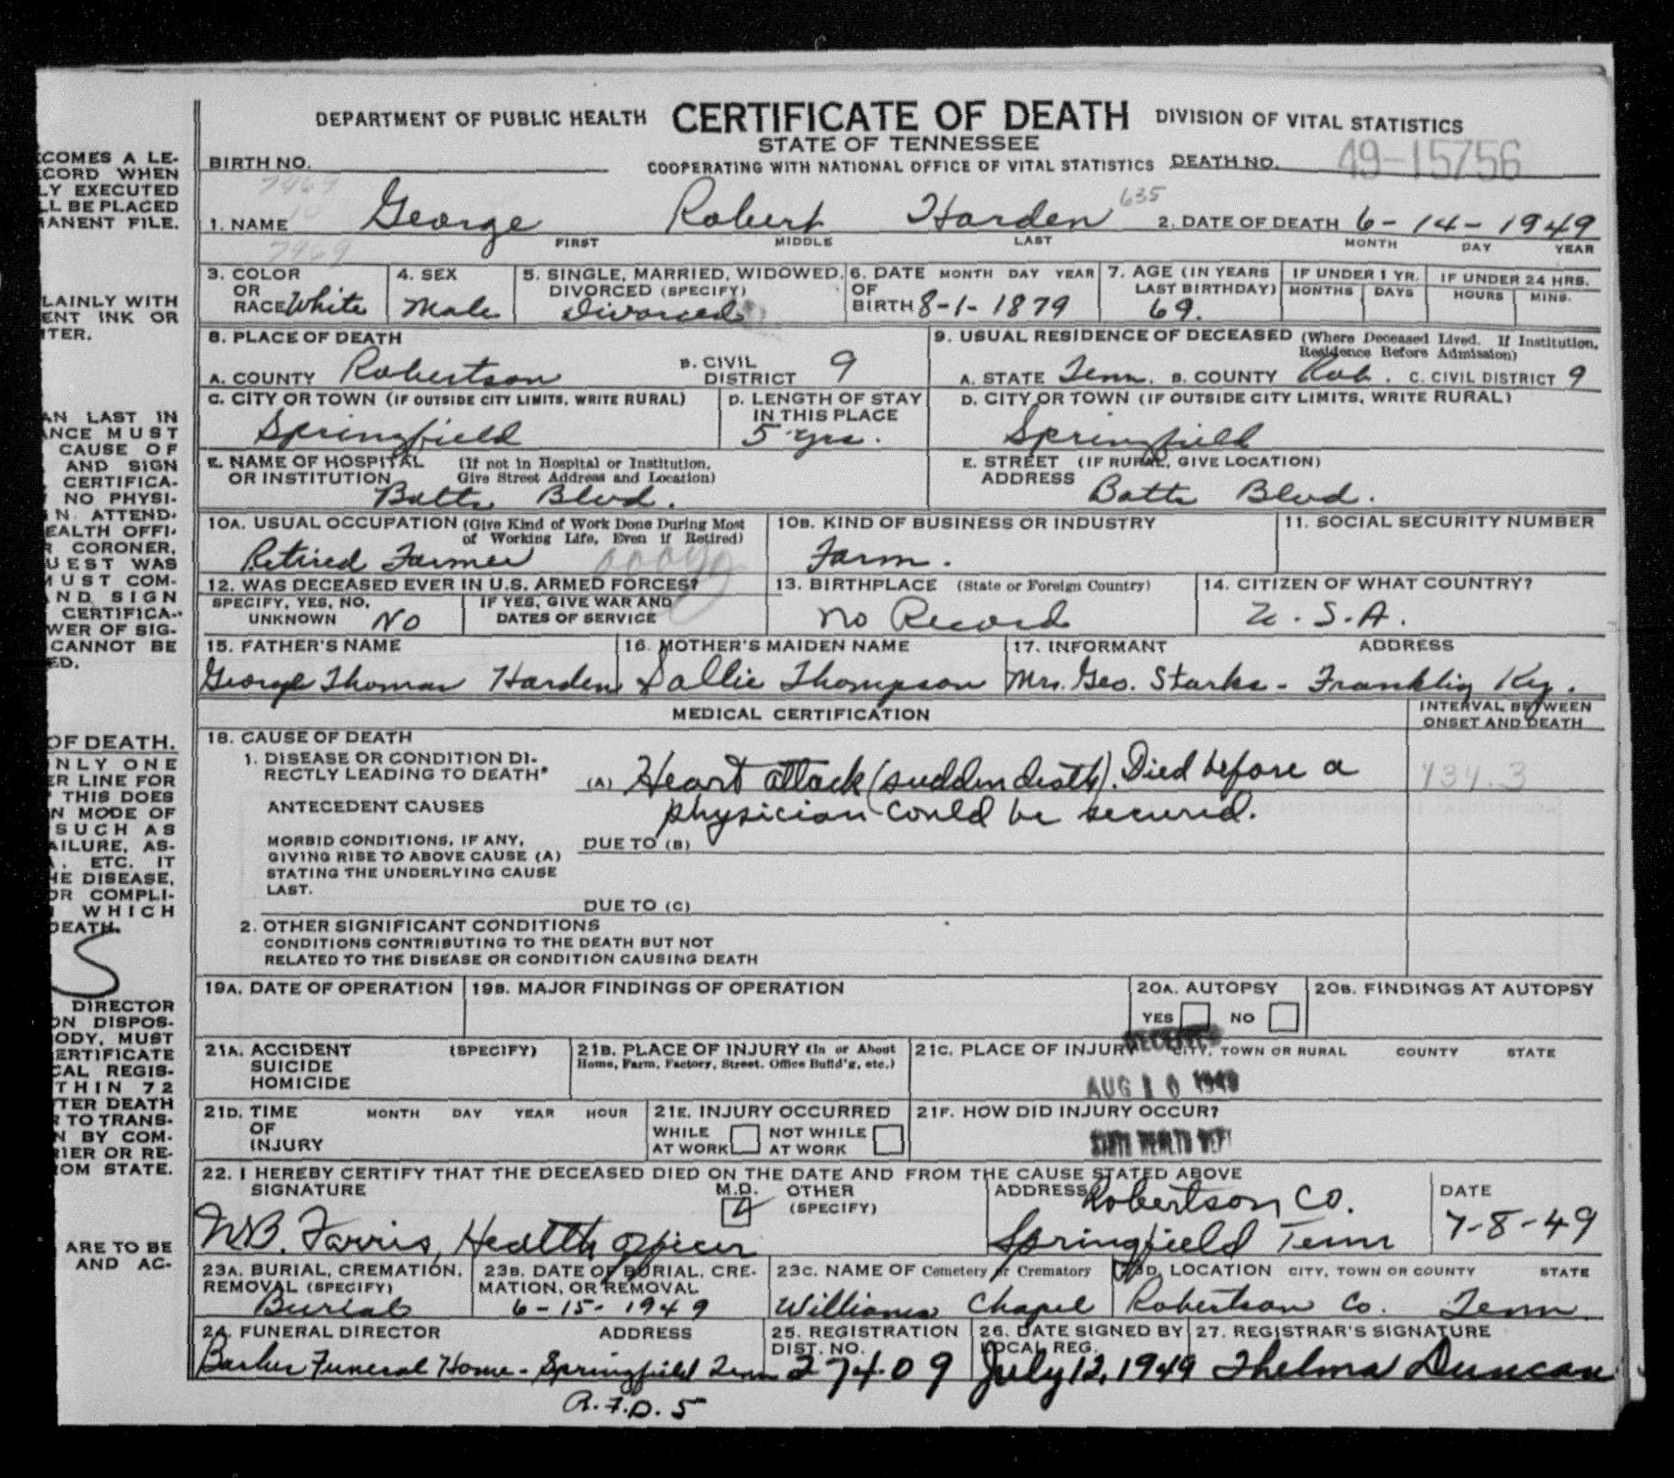 DEPARTMENT OF PUBLIC HEALTH CERTIFICATE OF DEATH DIVISION OF VITAL STATISTICS
STATE OF TENNESSEE
BIRTH NO. COOPERATING WITH NATIONAL OFFICE OF VITAL STATISTICS DEATH NO. 49-15756
7969
635
1. NAME George Robert Harden 2. DATE OF DEATH 6-14-1949
FIRST MIDDLE LAST MONTH DAY YEAR
7969
3. COLOR OR RACE White
4. SEX Male
5. SINGLE, MARRIED, WIDOWED, DIVORCED (SPECIFY) Divorced
6. DATE OF BIRTH MONTH DAY YEAR 8-1-1879
7. AGE (IN YEARS LAST BIRTHDAY) 69.
IF UNDER 1 YR. MONTHS DAYS
IF UNDER 24 HRS. HOURS MINS.
8. PLACE OF DEATH
A. COUNTY Robertson B. CIVIL DISTRICT 9
9. USUAL RESIDENCE OF DECEASED (Where Deceased Lived. If Institution, Residence Before Admission)
A. STATE Tenn. B. COUNTY Rob. C. CIVIL DISTRICT 9
C. CITY OR TOWN (IF OUTSIDE CITY LIMITS, WRITE RURAL)
Springfield
D. LENGTH OF STAY IN THIS PLACE
5 yrs.
D. CITY OR TOWN (IF OUTSIDE CITY LIMITS, WRITE RURAL)
Springfield
E. NAME OF HOSPITAL OR INSTITUTION (If not in Hospital or Institution, Give Street Address and Location)
Batts Blvd.
E. STREET ADDRESS (IF RURAL, GIVE LOCATION)
Batts Blvd.
10A. USUAL OCCUPATION (Give Kind of Work Done During Most of Working Life, Even if Retired)
Retired Farmer
10B. KIND OF BUSINESS OR INDUSTRY
Farm.
11. SOCIAL SECURITY NUMBER
12. WAS DECEASED EVER IN U.S. ARMED FORCES?
SPECIFY, YES, NO, UNKNOWN No
IF YES, GIVE WAR AND DATES OF SERVICE
13. BIRTHPLACE (State or Foreign Country)
No Record
14. CITIZEN OF WHAT COUNTRY?
U.S.A.
15. FATHER'S NAME
George Thomas Harden
16. MOTHER'S MAIDEN NAME
Sallie Thompson
17. INFORMANT ADDRESS
Mrs. Geo. Starks - Franklin Ky.
MEDICAL CERTIFICATION
INTERVAL BETWEEN ONSET AND DEATH
18. CAUSE OF DEATH
1. DISEASE OR CONDITION DIRECTLY LEADING TO DEATH*
(A) Heart attack (sudden death). Died before a
physician could be secured.
434.3
ANTECEDENT CAUSES
MORBID CONDITIONS, IF ANY, GIVING RISE TO ABOVE CAUSE (A) STATING THE UNDERLYING CAUSE LAST.
DUE TO (B)
DUE TO (C)
2. OTHER SIGNIFICANT CONDITIONS
CONDITIONS CONTRIBUTING TO THE DEATH BUT NOT
RELATED TO THE DISEASE OR CONDITION CAUSING DEATH
19A. DATE OF OPERATION
19B. MAJOR FINDINGS OF OPERATION
20A. AUTOPSY
YES NO
20B. FINDINGS AT AUTOPSY
21A. ACCIDENT SUICIDE HOMICIDE (SPECIFY)
21B. PLACE OF INJURY (In or About Home, Farm, Factory, Street, Office Build'g, etc.)
21C. PLACE OF INJURY CITY, TOWN OR RURAL COUNTY STATE
RECEIVED
AUG 10 1949
STATE HEALTH DEPT
21D. TIME OF INJURY MONTH DAY YEAR HOUR
21E. INJURY OCCURRED
WHILE AT WORK NOT WHILE AT WORK
21F. HOW DID INJURY OCCUR?
22. I HEREBY CERTIFY THAT THE DECEASED DIED ON THE DATE AND FROM THE CAUSE STATED ABOVE
SIGNATURE M.D. OTHER (SPECIFY)
W.B. Farris, Health Officer
ADDRESS Robertson Co.
Springfield Tenn
DATE
7-8-49
23A. BURIAL, CREMATION, REMOVAL (SPECIFY)
Burial
23B. DATE OF BURIAL, CREMATION, OR REMOVAL
6-15-1949
23C. NAME OF Cemetery or Crematory
Williams Chapel
23D. LOCATION CITY, TOWN OR COUNTY STATE
Robertson Co. Tenn.
24. FUNERAL DIRECTOR ADDRESS
Barbee Funeral Home - Springfield Tenn
R.F.D. 5
25. REGISTRATION DIST. NO.
27409
26. DATE SIGNED BY LOCAL REG.
July 12, 1949
27. REGISTRAR'S SIGNATURE
Thelma Duncan
COMES A LE-
CORD WHEN
LY EXECUTED
LL BE PLACED
ANENT FILE.
LAINLY WITH
ENT INK OR
ITER.
AN LAST IN
ANCE MUST
CAUSE OF
AND SIGN
CERTIFICA-
NO PHYSI-
N ATTEND-
EALTH OFFI-
R CORONER,
UEST WAS
MUST COM-
AND SIGN
CERTIFICA-
WER OF SIG-
CANNOT BE
ED.
OF DEATH.
ONLY ONE
ER LINE FOR
THIS DOES
N MODE OF
SUCH AS
AILURE, AS-
. ETC. IT
HE DISEASE,
OR COMPLI-
WHICH
DEATH.
S
DIRECTOR
ON DISPOS-
ODY, MUST
ERTIFICATE
CAL REGIS-
THIN 72
TER DEATH
R TO TRANS-
N BY COM-
RIER OR RE-
OM STATE.
ARE TO BE
AND AC-